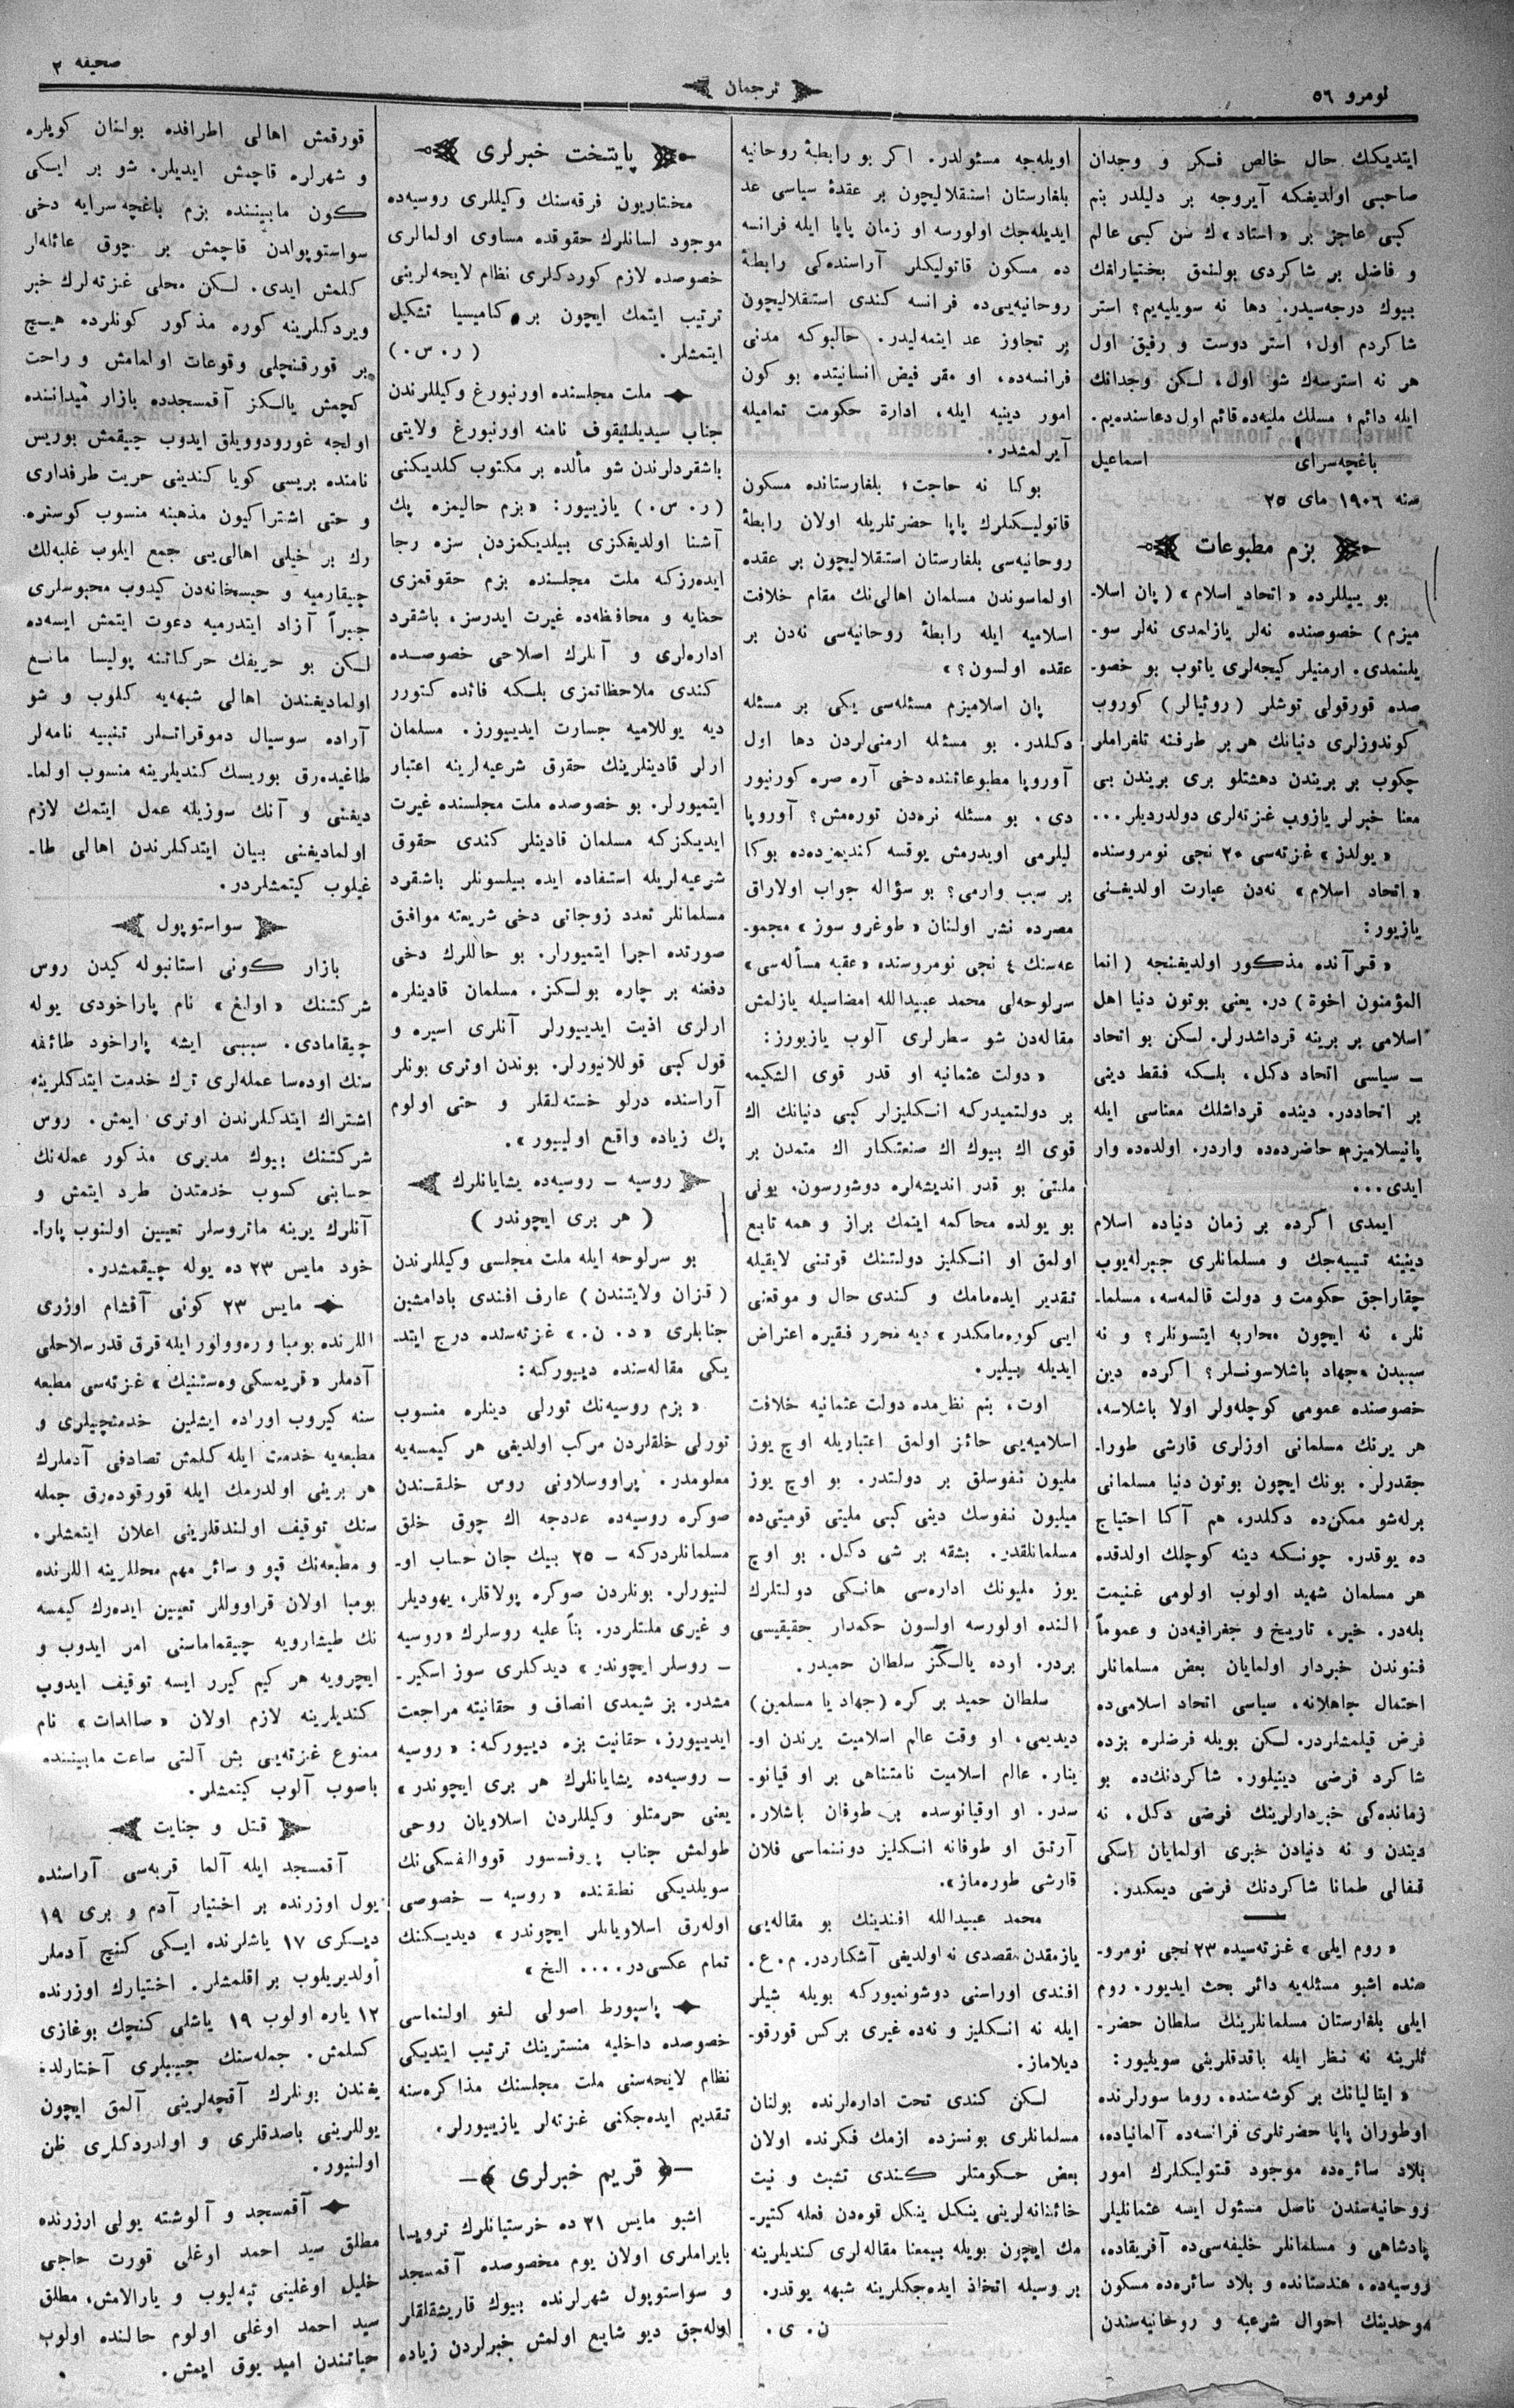 نومرو ٥٦
ترجمان
صحیفه ٢
ایتدیکك حال خالص فـکر و وجدان
صاحبی اولدیغکه آیروجه بر دلیلدر بنم
کبی عاجز بر «استاد» ك سن کبی عالم
و فاضل بر شاکردی بولنمق بختیارلغك
بیوك درجه‌سیدر. دها نه سویلیه‌یم؟ استر
شاکردم اول؛ استر دوست و رفیق اول
هر نه استرسه‌ك شو اول، لـکن وجدانك
ایله دائم؛ مسلك ملیه‌ده قائم اول دعاسنده‌یم.
باغچه‌سرای اسماعیل
سنه ١٩٠٦ مای ٢٥
بزم مطبوعات
بو ییللرده «اتحاد اسلام» (پان اسلا-
میزم) خصوصنده نه‌لر یازلمدی نه‌لر سو-
یلنمدی. ارمنیلر کیجه‌لری یاتوب بو خصو-
صده قورقولی توشلر (رؤیالر) کوروب
کوندوزلری دنیانك هر بر طرفنه تلغراملر
چکوب بر بریندن دهشتلو بری بریندن بی
معنا خبرلر یازوب غزته‌لری دولدردیلر...
«یولدز» غزته‌سی ٢٠ نجی نومروسنده
«اتحاد اسلام» نه‌دن عبارت اولدیغـنی
یازیور:
«قرآنده مذکور اولدیغنجه (انما
المؤمنون اخوة) در. یعنی بوتون دنیا اهل
اسلامی بر برینه قرداشدرلر. لـکن بو اتحاد
– سیاسی اتحاد دکل، بلـکه فقط دینی
بر اتحاددر. دینده قرداشلك معناسی ایله
پانیسلامیزم حاضرده‌ده واردر. اولده‌ده وار
ایدی...
ایمدی اکرده بر زمان دنیاده اسلام
دیننه تییه‌جك و مسلمانلری جبرله‌یوب
چقاراجق حکومت و دولت قالمه‌سه، مسلما-
نلر، نه ایچون محاربه ایتسونلر؟ و نه
سببدن «جهاد باشلاسونـلر؟ اکرده دین
خصوصنده عمومی کوچله‌ولر اولا باشلاسه،
هر یرنك مسلمانی اوزلری قارشی طورا-
جقدرلر. بونك ایچون بوتون دنیا مسلمانی
برله‌شو ممکن‌ده دکلدر، هم آکا احتیاج
ده یوقدر. چونـکه دینه کوچلك اولدقده
هر مسلمان شهید اولوب اولومی غنیمت
بله‌در. خیر، تاریخ و جغرافیه‌دن و عموماً
فنوندن خبردار اولمایان بعض مسلمانلر
احتمال جاهلانه، سیاسی اتحاد اسلامی‌ده
فرض قیلمشلردر. لـکن بویله فرضلره بزده
شاکرد فرضی دینیلور. شاکردنك‌ده بو
زمانده‌کی خبردارلرینك فرضی دکل، نه
دیندن و نه دنیادن خبری اولمایان اسکی
قفالی طمانا شاکردنك فرضی دیمکدر.
«روم ایلی» غزته‌سیده ٢٣ نجی نومرو-
سنده اشبو مسئله‌یه دائر بحث ایدیور. روم
ایلی بلغارستان مسلمانلرینك سلطان حضر-
تلرینه نه نظر ایله باقدقلرینی سویلیور:
«ایتالیانك بر کوشه‌سنده، روما سورلرنده
اوطوران پاپا حضرتلری فرانسه‌ده آلمانیاده،
بلاد سائره‌ده موجود قتولیکلرك امور
روحانیه‌سندن ناصل مسئول ایسه عثمانلیلر
پادشاهی و مسلمانلر خلیفه‌سی‌ده آفریقاده،
روسیه‌ده، هندستانده و بلاد سائره‌ده مسکون
موحدینك احوال شرعیه و روحانیه‌سندن
اویله‌جه مسئولدر. اکر بو رابطهٔ روحانیه
بلغارستان استقلالیچون بر عقدهٔ سیاسی عد
ایدیله‌جك اولورسه او زمان پاپا ایله فرانسه
ده مسکون قاتولیکلر آراسنده‌کی رابطهٔ
روحانیه‌یی‌ده فرانسه کندی استقلالیچون
بر تجاوز عد ایتمه‌لیدر. حالبوکه مدنی
فرانسه‌ده، او مقر فیض انسانیتده بو کون
امور دینیه ایله، ادارهٔ حکومت تمامیله
آیرلمشدر.
بوکا نه حاجت؛ بلغارستانده مسکون
قاتولیـکلرك پاپا حضرتلریله اولان رابطهٔ
روحانیه‌سی بلغارستان استقلالیچون بر عقده
اولماسوندن مسلمان اهالی‌نك مقام خلافت
اسلامیه ایله رابطهٔ روحانیه‌سی نه‌دن بر
عقده اولسون؟»
پان اسلامیزم مسئله‌سی یکی بر مسئله
دکلدر. بو مسئله ارمنی‌لردن دها اول
آوروپا مطبوعاتنده دخی آره صره کورنیور
دی. بو مسئله نره‌دن توره‌مش؟ آوروپا
لیلرمی اویدرمش یوقسه کندیمزده‌ده بوکا
بر سبب وارمی؟ بو سؤاله جواب اولاراق
مصرده نشر اولنان «طوغرو سوز» مجمو-
عه‌سنك ٤ نجی نومروسنده «عقبه مسأله‌سی»
سرلوحه‌لی محمد عبیدالله امضاسیله یازلمش
مقاله‌دن شو سطرلری آلوب یازیورز:
«دولت عثمانیه او قدر قوی الشکیمه
بر دولتمیدرکه انـکلیزلر کبی دنیانك اك
قوی اك بیوك اك صنعتکار اك متمدن بر
ملتی بو قدر اندیشه‌لره دوشورسون، بونی
بو یولده محاکمه ایتمك براز و همه تابع
اولمق او انـکلیز دولتنك قوتنی لایقیله
تقدیر ایده‌مامك و کندی حال و موقعنی
ایی کوره‌مامکدر» دیه محرر فقیره اعتراض
ایدیله بیلیر.
اوت، بنم نظرمده دولت عثمانیه خلافت
اسلامیه‌یی حائز اولمق اعتباریله اوچ یوز
ملیون نفوسلق بر دولتدر. بو اوچ یوز
میلیون نفوسك دینی کبی ملیتی قومیتی‌ده
مسلمانلقدر. بشقه بر شی دکل. بو اوچ
یوز ملیونك اداره‌سی هانـکی دولتلرك
النده اولورسه اولسون حکمدار حقیقیسی
بردر. اوده یالـکز سلطان حمیدر.
سلطان حمید بر کره (جهاد یا مسلمین)
دیدیمی، او وقت عالم اسلامیت یرندن او-
ینار. عالم اسلامیت نامتناهی بر اوقیانو-
سدر. او اوقیانوسده بر طوفان باشلار.
آرتق او طوفانه انـکلیز دونانماسی فلان
قارشی طوره‌ماز».
محمد عبیدالله افندینك بو مقاله‌یی
یازمقدن مقصدی نه اولدیغی آشکاردر. م.ع.
افندی اوراسنی دوشونمیورکه بویله شیلر
ایله نه انـکلیز و نه‌ده غیری برکس قورقو-
دیلاماز.
لـکن کندی تحت اداره‌لرنده بولنان
مسلمانلری بونسزده ازمك فـکرنده اولان
بعض حـکومتلر کـندی تشبث و نیت
خائنانه‌لرینی ینکیل ینکل قوه‌دن فعله کتیر-
مك ایچون بویله بیمعنا مقاله‌لری کندیلرینه
بر وسیله اتخاذ ایده‌جکلرینه شبهه یوقدر.
ن. ی.
پایتخت خبرلری
مختاریون فرقه‌سنك وکیللری روسیه‌ده
موجود لسانلرك حقوقده مساوی اولمالری
خصوصده لازم کوردکلری نظام لایحه‌لرینی
ترتیب ایتمك ایچون بر کامیسیا تشکیل
ایتمشلر. (ر.س.)
ملت مجلسنده اورنبورغ وکیللرندن
جناب سیدیلنیقوف نامنه اورنبورغ ولایتی
باشقردلرندن شو مألده بر مکتوب کلدیکنی
(ر.س.) یازییور: «بزم حالیمزه پك
آشنا اولدیغکزی بیلدیکمزدن سزه رجا
ایده‌رزکه ملت مجلسنده بزم حقوقمزی
حمایه و محافظه‌ده غیرت ایدرسز، باشقرد
اداره‌لری و آنلرك اصلاحی خصوصـده
کندی ملاحظاتمزی بلـکه فائده کتورر
دیه یوللامیه جسارت ایدییورز. مسلمان
ارلر قادینلرینك حقوق شرعیه‌لرینه اعتبار
ایتمیورلر. بو خصوصده ملت مجلسنده غیرت
ایدیـکزکه مسلمان قادینلر کندی حقوق
شرعیه‌لریله استفاده ایده بیلسونلر باشقرد
مسلمانلر تعدد زوجاتی دخی شریعته موافق
صورتده اجرا ایتمیورلر. بو حاللرك دخی
دفعنه بر چاره بولـکز. مسلمان قادینلره
ارلری اذیت ایدییورلر آنلری اسیره و
قول کبی قوللانیورلر. بوندن اوتری بونلر
آراسنده درلو خسته‌لقلر و حتی اولوم
پك زیاده واقع اولییور».
روسیه – روسیه‌ده یشایانلرك
(هر بری ایچوندر)
بو سرلوحه ایله ملت مجلسی وکیللرندن
(قزان ولایتندن) عارف افندی بادامشین
جنابلری «د.ن.» غزته‌سنده درج ایتد-
یکی مقاله‌سنده دییورکه:
«بزم روسیه‌نك تورلی دینلره منسوب
تورلی خلقلردن مرکب اولدیغی هر کیمسه‌یه
معلومدر. پراووسلاونی روس خلقـندن
صوکره روسیه‌ده عددجه اك چوق خلق
مسلمانلردرکه – ٢٥ بیك جان حساب او-
لنیورلر. بونلردن صوکره پولاقلر، یهودیلر
و غیری ملتلردر. بناً علیه روسلرك «روسیه
– روسلر ایچوندر» دیدکلری سوز اسکیر-
مشدر. بز شیمدی انصاف و حقانیته مراجعت
ایدییورز، حقانیت بزه دییورکه: «روسیه
– روسیه‌ده یشایانلرك هر بری ایچوندر»
یعنی حرمتلو وکیللردن اسلاویان روحی
طولمش جناب پروفسور قووالفسکی‌نك
سویلدیکی نطقنده «روسیه – خصوصی
اوله‌رق اسلاویانلر ایچوندر» دیدیـکنك
تمام عکسی‌در.... الخ»
پاسپورط اصولی لغو اولنماسی
خصوصده داخلیه منسترینك ترتیب ایتدیکی
نظام لایحه‌سنی ملت مجلسنك مذاکره‌سنه
تقدیم ایده‌جکنی غزته‌لر یازییورلر.
قریم خبرلری
اشبو مایس ٢١ ده خرستیانلرك ترویسا
بایراملری اولان یوم مخصوصده آقمسجد
و سواستوپول شهرلرنده بیوك قاریشقلقلر
اوله‌جق دیو شایع اولمش خبرلردن زیاده
قورقمش اهالی اطرافده بولنان کویلره
و شهرلره قاچمش ایدیلر. شو بر ایـکی
کون مابیننده بزم باغچه‌سرایه دخی
سواستوپولدن قاچمش بر چوق عائله‌لر
کلمش ایدی. لـکن محلی غزته‌لرك خبر
ویردکلرینه کوره مذکور کونلرده هیـچ
بر قورقنچلی وقوعات اولمامش و راحت
کچمش یالـکز آقمسجدده بازار میداننده
اولجه غورودوویلق ایدوب چیقمش بوریس
نامنده بریسی کویا کندینی حریت طرفداری
و حتی اشتراکیون مذهبنه منسوب کوستره-
رك بر خیلی اهالی‌یی جمع ایلوب غلبه‌لك
چیقارمیه و حبسخانه‌دن کیدوب محبوسلری
جبراً آزاد ایتدرمیه دعوت ایتمش ایسه‌ده
لـکن بو حریفك حرکاتنه پولیسا مانع
اولمادیغندن اهالی شبهه‌یه کلوب و شو
آراده سوسیال دموقراتـلر تنبیه نامه‌لر
طاغیده‌رق بوریسك کندیلرینه منسوب اولما-
دیغنی و آنك سوزیله عمل ایتمك لازم
اولمادیغنی بیان ایتدکلرندن اهالی طا-
غیلوب کیتمشلردر.
سواستوپول
بازار کـونی استانبوله کیدن روس
شرکتنك «اولغ» نام پاراخودی یوله
چیقامادی. سببی ایشه پاراخود طائفه
سنك اوده‌سا عمله‌لری ترك خدمت ایتدکلرینه
اشتراك ایتدکلرندن اوتری ایمش. روس
شرکتنك بیوك مدیری مذکور عمله‌نك
حسابنی کسوب خدمتدن طرد ایتمش و
آنلرك یرینه ماتروسلر تعیین اولنوب پارا-
خود مایس ٢٣ ده یوله چیقمشدر.
مایس ٢٣ کونی آقشام اوزری
اللرنده بومبا و ره‌ووالور ایله قرق قدر سلاحلی
آدملر «قریمسکی وه‌ستنیك» غزته‌سی مطبعه
سنه کیروب اوراده ایشلین خدمتچیلری و
مطبعه‌یه خدمت ایله کلمش تصادفی آدملرك
هر برینی اولدرمك ایله قورقوده‌رق جمله
سنك توقیف اولندقلرینی اعلان ایتمشلر.
و مطبعه‌نك قپو و سائر مهم محللرینه اللرنده
بومبا اولان قراووللر تعیین ایده‌رك کیمسه
نك طیشارویه چیقماماسنی امر ایدوب و
ایچرویه هر کیم کیرر ایسه توقیف ایدوب
کندیلرینه لازم اولان «صالدات» نام
ممنوع غزته‌یی بش آلتی ساعت مابیننده
باصوب آلوب کیتمشلر.
قتل و جنایت
آقمسجد ایله آلما قریه‌سی آراسنده
یول اوزرنده بر اختیار آدم و بری ١٩
دیـکری ١٧ یاشلرنده ایـکی کنچ آدملر
اولدیریلوب براقلمشلر. اختیارك اوزرنده
١٢ یاره اولوب ١٩ یاشلی کنچك بوغازی
کسلمش. جمله‌سنك جیبلری آختارلد-
یغندن بونلرك آقچه‌لرینی آلمق ایچون
یوللرینی باصدقلری و اولدردکلری ظن
اولنیور.
آقمسجد و آلوشته یولی اوزرنده
مطلق سید احمد اوغلی قورت حاجی
خلیل اوغلینی تپه‌لیوب و یارالامش، مطلق
سید احمد اوغلی اولوم حالنده اولوب
حیاتندن امید یوق ایمش.